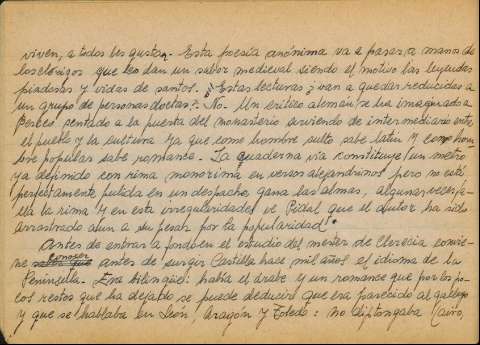 viven, a todos les gusta. Esta poesía anónima va a pasar a manos de
los clérigos que le dan un sabor medieval siendo el motivo las leyendas
piadosas y vidas de santos. ¿Estas lecturas van a quedar reducidas a
un grupo de personas doctas? No. Un crítico alemán se ha imaginado a
Berceo sentado a la puesta del monasterio sirviendo de intermediario entre
el pueblo y la cultura ya que como hombre culto sabe latín y como hom
bre popular sabe romance. La cuaderna vía constituye un metro
ya definido con rima monorima en versos alejandrinos pero no está
perfectamente pulida en un despacho, gana las almas, algunas veces fa-
lla la rima y en esta irregularidades ve Pidal que el autor ha sido
arrastrado aun a su pesar por la popularidad.
Antes de entrar a fondo en el estudio del mester de Clerecía convie-
ne conocer antes de surgir Castilla hace mil años el idioma de la
Península. Era bilingüe: había el árabe y un romance que por los po-
cos restos que ha dejado se puede deducir que era parecido al gallego
y que se hablaba en León, Aragón y Toledo: no diptongaba